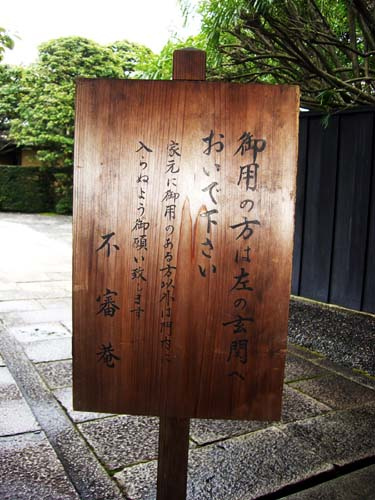 御用の方は左の玄関へ
おいで下さい
家元に御用のある方以外は門内に
入らぬよう御願い致します
不審菴